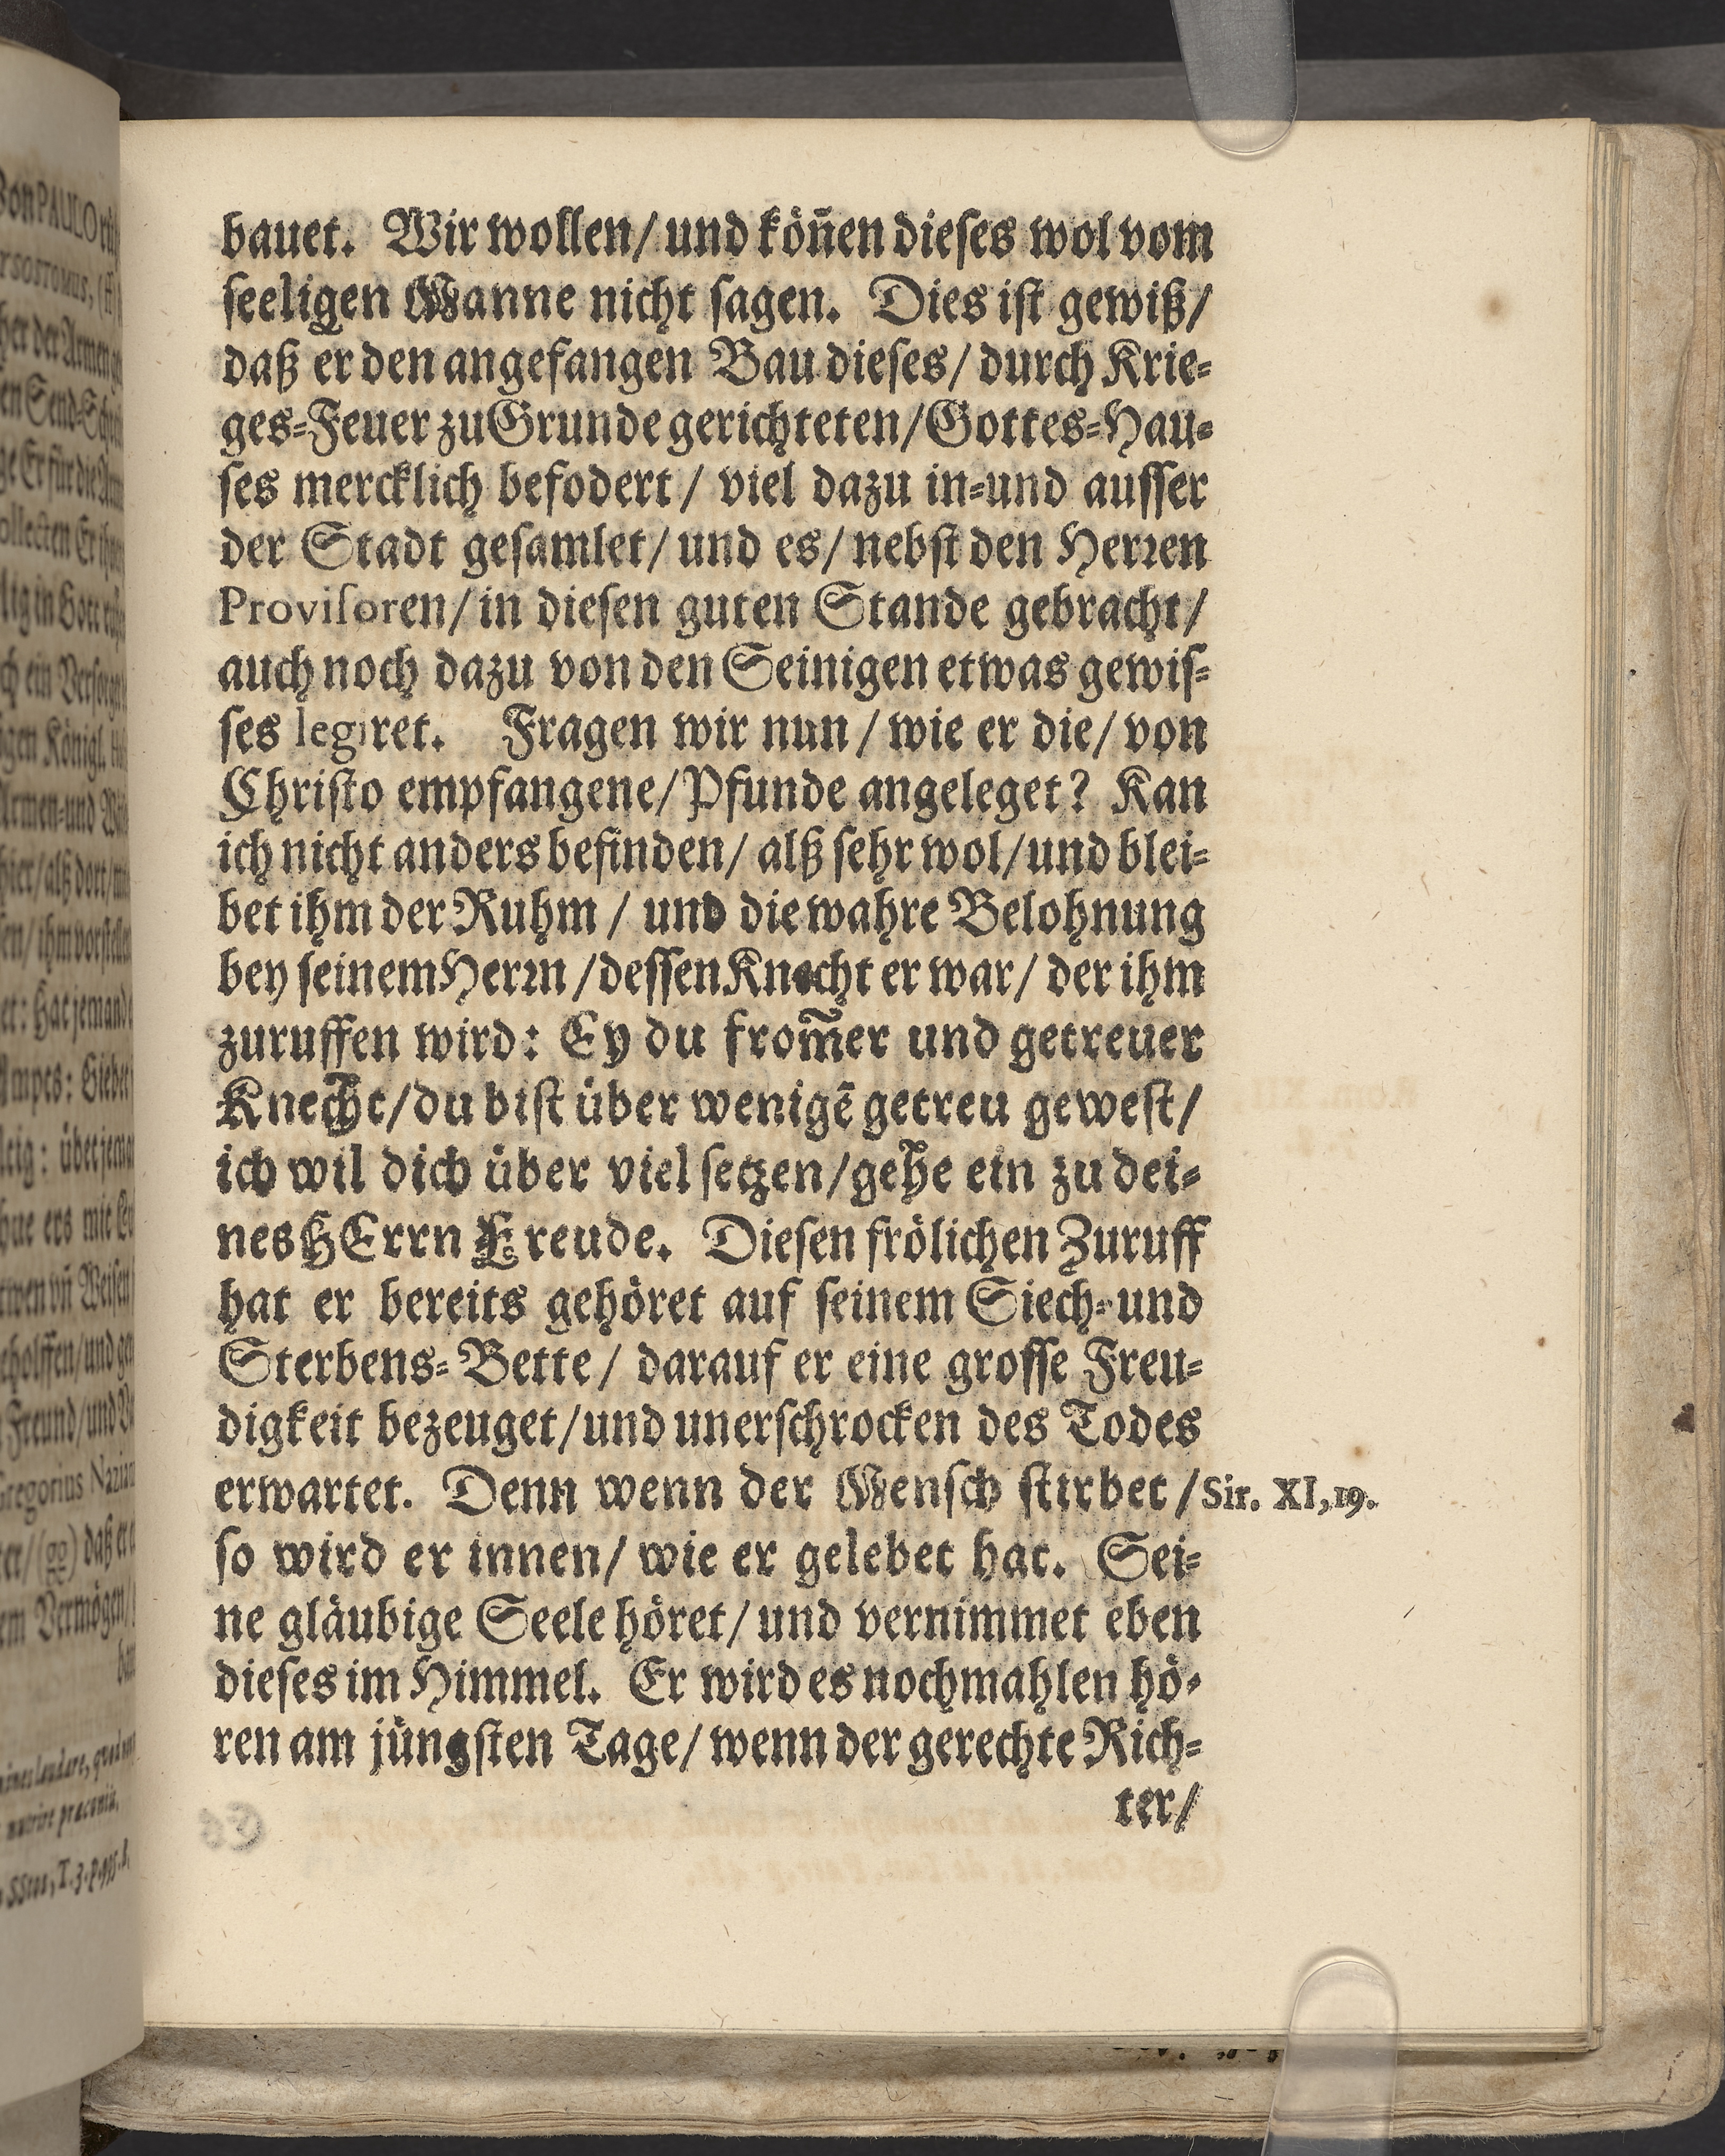 bauet. Wir wollen/ und köñen dieſes wol vom
ſeeligen Manne nicht ſagen. Dies iſt gewiß/
daß er den angefangen Bau dieſes/ durch Krie-
ges-Feuer zu Grunde gerichteten/ Gottes-Hau-
ſes mercklich befodert/ viel dazu in-und auſſer
der Stadt geſamlet/ und es/ nebſt den Herꝛen
Proviſoren/ in dieſen guten Stande gebracht/
auch noch dazu von den Seinigen etwas gewiſ-
ſes legiret. Fragen wir nun/ wie er die/ von
Chriſto empfangene/ Pfunde angeleget? Kan
ich nicht anders befinden/ alß ſehr wol/ und blei-
bet ihm der Ruhm/ und die wahre Belohnung
bey ſeinem Herꝛn/ deſſen Knecht er war/ der ihm
zuruffen wird: Ey du from̃er und getreuer
Knecht/ du biſt über wenigẽ getreu geweſt/
ich wil dich über viel ſetzen/ gehe ein zu dei-
nes HErrn Freude. Dieſen frölichen Zuruff
hat er bereits gehöret auf ſeinem Siech-und
Sterbens-Bette/ darauf er eine groſſe Freu-
digkeit bezeuget/ und unerſchrocken des Todes
erwartet. Denn wenn der Menſch ſtirbet/ Sir. XI, 19.
ſo wird er innen/ wie er gelebet hat. Sei-
ne gläubige Seele höret/ und vernimmet eben
dieſes im Himmel. Er wird es nochmahlen hö-
ren am jüngſten Tage/ wenn der gerechte Rich-
ter/